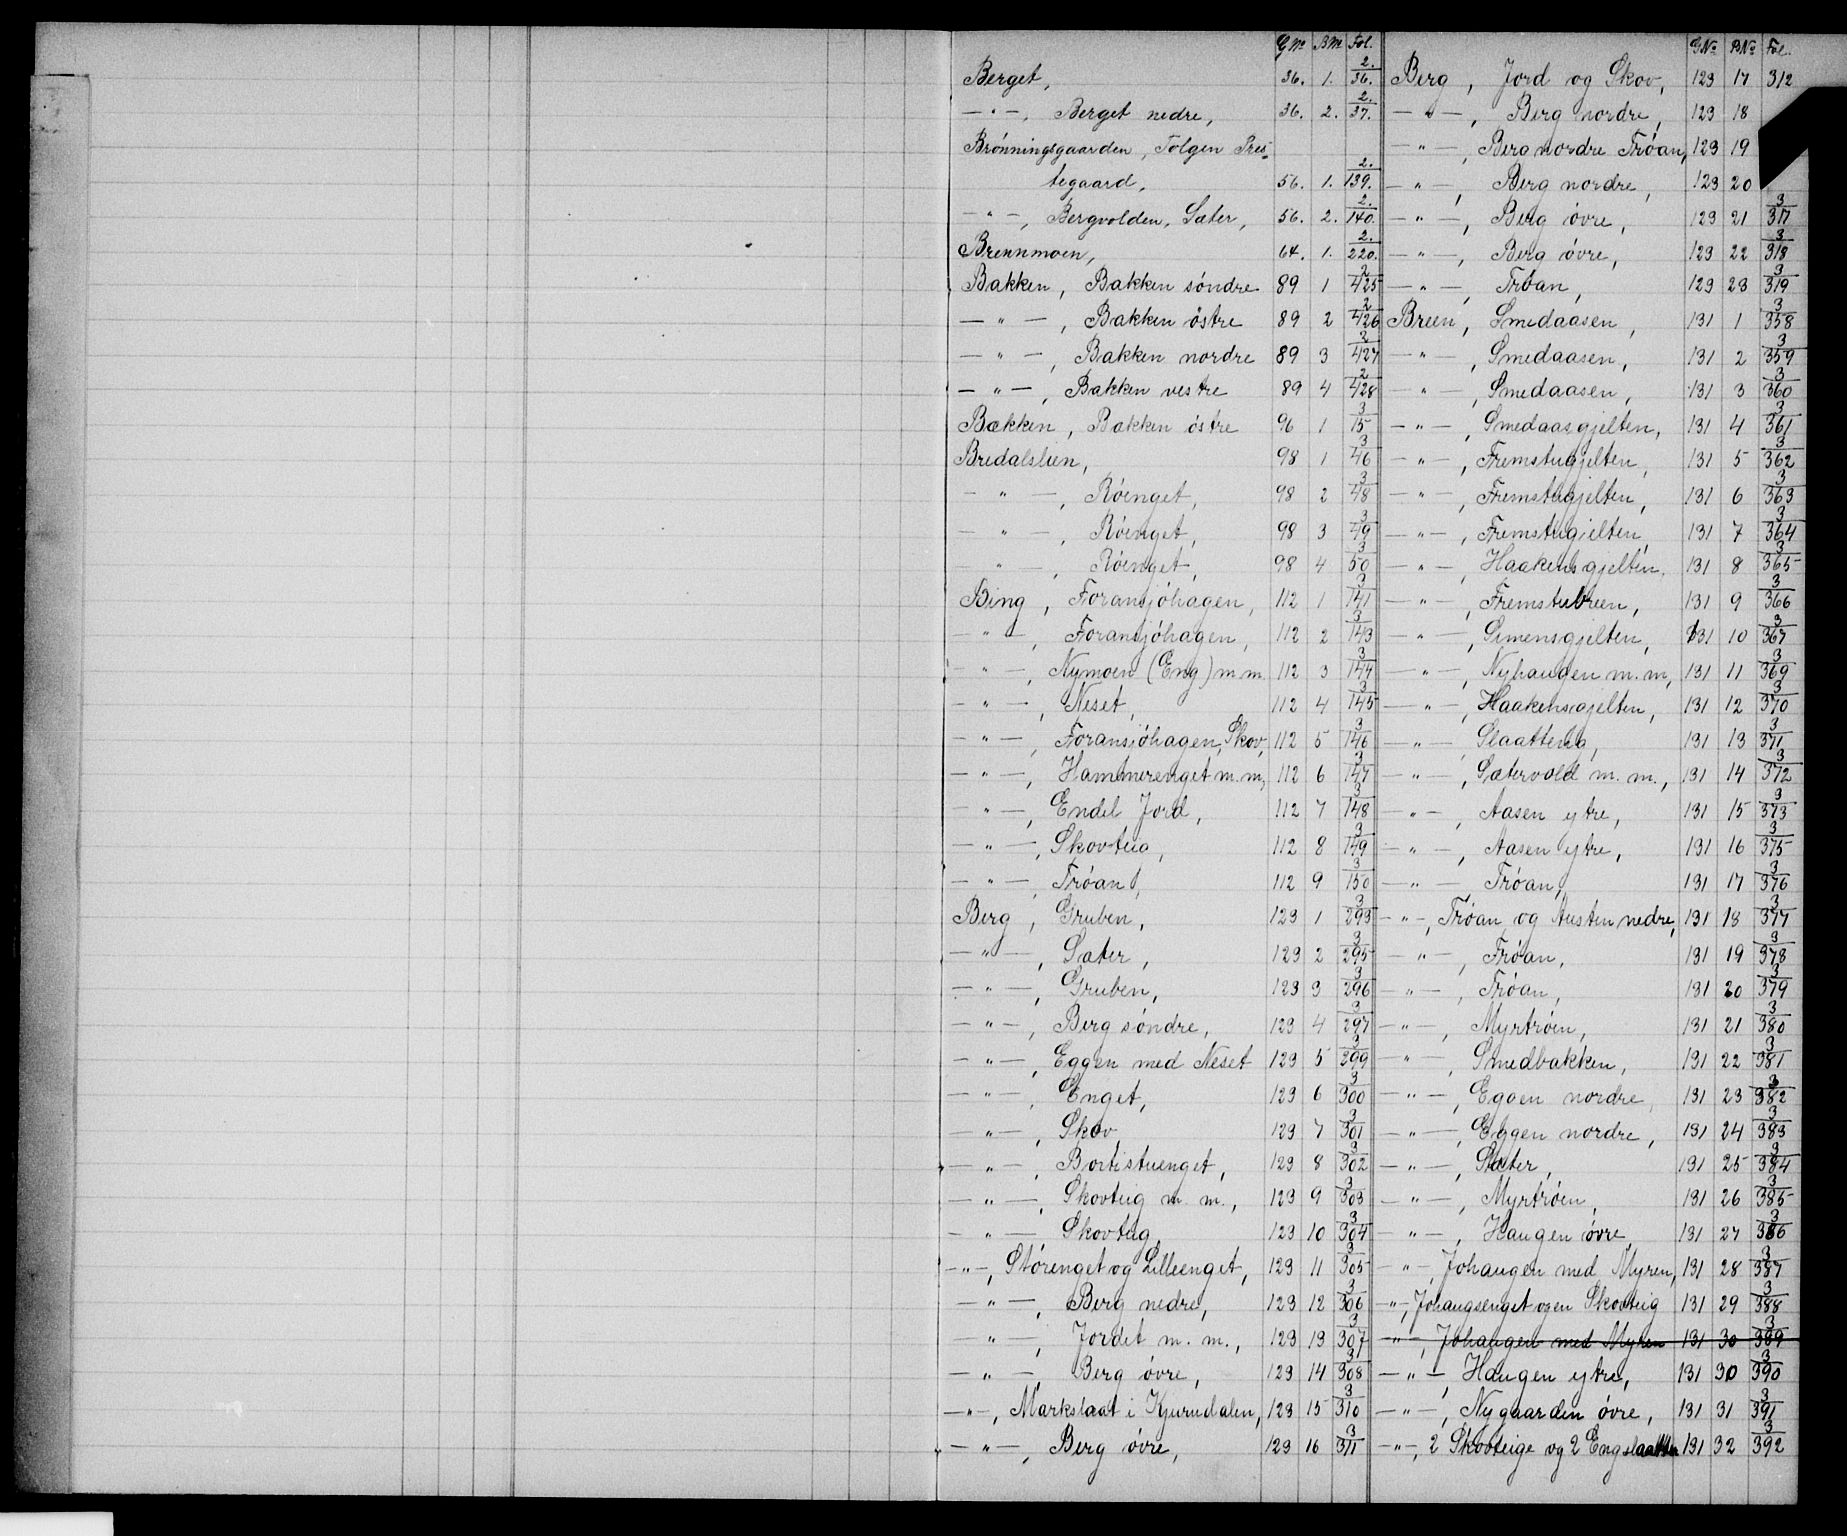 GNo BNo Fol.
Berget, 36. 1. 2./36.
— " —, Berget nedre, 36. 2. 2./37.
Brønningsgaarden, Tolgen Pres-
tegaard, 56. 1. 2./139.
— " —, Bergvolden, Sæter, 56. 2. 2./140.
Brennmoen, 64. 1. 2./220.
Bakken, Bakken søndre 89 1 2/425
— " —, Bakken østre 89 2 2/426
— " —, Bakken nordre 89 3 2/427
— " —, Bakken vestre 89 4 2/428
Bækken, Bækken østre 96 1 3/15
Bredalslien, 98 1 3/46
— " —, Røenget, 98 2 3/48
— " —, Røenget, 98 3 3/49
— " —, Røenget, 98 4 3/50
Bing, Foransjøhagen, 112 1 3/141
— " —, Foransjøhagen, 112 2 3/143
— " —, Nymoen (Eng) m.m. 112 3 3/144
— " —, Neset, 112 4 3/145
— " —, Foransjøhagen, Skov, 112 5 3/146
— " —, Hammerenget m.m, 112 6 3/147
— " —, Endel Jord, 112 7 3/148
— " —, Skovteig, 112 8 3/149
— " —, Trøan, 112 9 3/150
Berg, Gruben, 123 1 3/293
— " —, Sæter, 123 2 3/295
— " —, Gruben, 123 3 3/296
— " —, Berg søndre, 123 4 3/297
— " —, Eggen med Neset 123 5 3/299
— " —, Enget, 123 6 3/300
— " —, Skov, 123 7 3/301
— " —, Bortistuenget, 123 8 3/302
— " —, Skovteig m. m., 123 9 3/303
— " —, Skovteig, 123 10 3/304
— " —, Størenget og Lilleenget, 123 11 3/305
— " —, Berg nedre, 123 12 3/306
— " —, Jordet m. m., 123 13 3/307
— " —, Berg øvre, 123 14 3/308
— " —, Markslaat i Kjurudalen, 123 15 3/310
— " —, Berg øvre, 123 16 3/311
GNo BNo Fol.
Berg, Jord og Skov, 123 17 312
— " —, Berg nordre, 123 18
— " —, Berg nordre Trøan, 123 19
— " —, Berg nordre, 123 20
— " —, Berg øvre, 123 21 3/317
— " —, Berg øvre, 123 22 3/318
— " —, Trøan, 123 23 3/319
Breen, Smedaasen, 131 1 3/358
— " —, Smedaasen, 131 2 3/359
— " —, Smedaasen, 131 3 3/360
— " —, Smedaasgjelten, 131 4 3/361
— " —, Fremstugjelten, 131 5 3/362
— " —, Fremstugjelten, 131 6 3/363
— " —, Fremstugjelten, 131 7 3/364
— " —, Haakensgjelten, 131 8 3/365
— " —, Fremstubreen, 131 9 3/366
— " —, Simensgjelten, 131 10 3/367
— " —, Nyhaugen m. m, 131 11 3/369
— " —, Haakensgjelten, 131 12 3/370
— " —, Slaatteng, 131 13 3/371
— " —, Sætervold m. m., 131 14 3/372
— " —, Aasen ytre, 131 15 3/373
— " —, Aasen ytre, 131 16 3/375
— " —, Trøan, 131 17 3/376
— " —, Trøan og Austen nedre, 131 18 3/377
— " —, Trøan, 131 19 3/378
— " —, Trøan, 131 20 3/379
— " —, Myrtrøen, 131 21 3/380
— " —, Smedbakken, 131 22 3/381
— " —, Eggen nordre, 131 23 3/382
— " —, Eggen nordre, 131 24 3/383
— " —, Sæter, 131 25 3/384
— " —, Myrtrøen, 131 26 3/385
— " —, Haugen øvre 131 27 3/386
— " —, Johaugen med Myren, 131 28 3/387
— " —, Johaugsenget og en Skovteig 131 29 3/388
— " —, Johaugen med Myren 131 30 3/389
— " —, Haugen ytre, 131 30 3/390
— " —, Nygaarden øvre, 131 31 3/391
— " —, 2 Skovteige og 2 Engslaatter 131 32 3/392